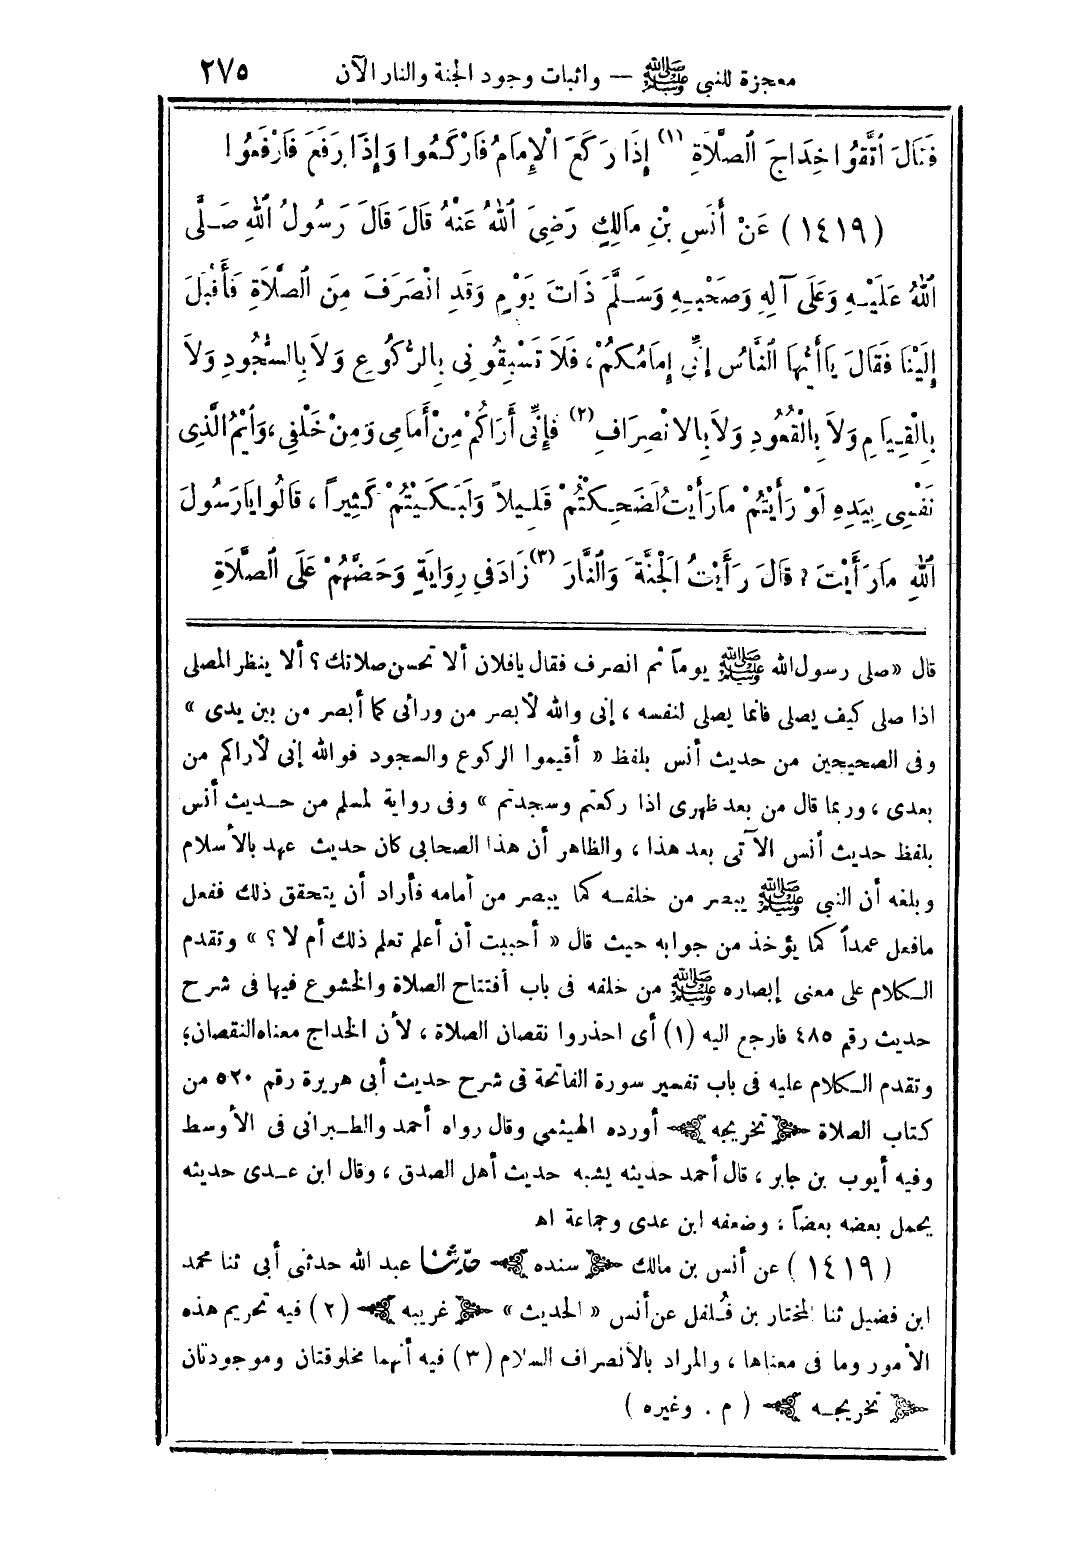 معجزة للنبي ﷺ — واثبات وجود الجنة والنار الآن ٢٧٥
فَقَالَ اُتَّقُوا خِدَاجَ الصَّلاَةِ (١) إِذَا رَكَعَ الْإِمَامُ فَارْكَعُوا وَإِذَا رَفَعَ فَارْفَعُوا
(١٤١٩) عَنْ أَنَسِ بْنِ مَالِكٍ رَضِىَ اللهُ عَنْهُ قَالَ قَالَ رَسُولُ اللهِ صَلَّى
اللهُ عَلَيْهِ وَعَلَى آلِهِ وَصَحْبِهِ وَسَلَّمَ ذَاتَ يَوْمٍ وَقَدِ انْصَرَفَ مِنَ الصَّلاَةِ فَأَقْبَلَ
إِلَيْنَا فَقَالَ يَا أَيُّهَا النَّاسُ إِنِّى إِمَامُكُمْ، فَلاَ تَسْبِقُونِى بِالرُّكُوعِ وَلاَ بِالسُّجُودِ وَلاَ
بِالْقِيَامِ وَلاَ بِالْقُعُودِ وَلاَ بِالِانْصِرَافِ (٢) فَإِنِّى أَرَاكُمْ مِنْ أَمَامِى وَمِنْ خَلْفِى، وَاُيْمُ الَّذِى
نَفْسِى بِيَدِهِ لَوْ رَأَيْتُمْ مَا رَأَيْتُ لَضَحِكْتُمْ قَلِيلاً وَلَبَكَيْتُمْ كَثِيراً، قَالُوا يَا رَسُولَ
اللهِ مَا رَأَيْتَ؟ قَالَ رَأَيْتُ الْجَنَّةَ وَالنَّارَ (٣) زَادَ فِى رِوَايَةٍ وَحَضَّهُمْ عَلَى الصَّلاَةِ
قال «صلى رسول الله ﷺ يوماً ثم انصرف فقال يافلان ألا تحسن صلاتك؟ ألا ينظر المصلى
اذا صلى كيف يصلى فانما يصلى لنفسه، إنى والله لأبصر من ورائى كما أبصر من بين يدى»
وفى الصحيحين من حديث أنس بلفظ «أقيموا الركوع والسجود فوالله إنى لأراكم من
بعدى، وربما قال من بعد ظهرى اذا ركعتم وسجدتم» وفى رواية لمسلم من حديث أنس
بلفظ حديث أنس الآتى بعد هذا، والظاهر أن هذا الصحابى كان حديث عهد بالأسلام
وبلغه أن النبى ﷺ يبصر من خلفه كما يبصر من أمامه فأراد أن يتحقق ذلك ففعل
مافعل عمداً كما يؤخذ من جوابه حيث قال «أحببت أن أعلم تعلم ذلك أم لا؟» وتقدم
الكلام على معنى إبصاره ﷺ من خلفه فى باب أفتتاح الصلاة والخشوع فيها فى شرح
حديث رقم ٤٨٥ فارجع اليه (١) أى احذروا نقصان الصلاة، لأن الخداج معناه النقصان؛
وتقدم الكلام عليه فى باب تفسير سورة الفاتحة فى شرح حديث أبى هريرة رقم ٥٢٠ من
كتاب الصلاة ﴿تخريجه﴾ أورده الهيثمى وقال رواه أحمد والطبرانى فى الأوسط
وفيه أيوب بن جابر، قال أحمد حديثه يشبه حديث أهل الصدق، وقال ابن عدى حديثه
يحمل بعضه بعضاً؛ وضعفه ابن عدى وجماعة اه
(١٤١٩) عن أنس بن مالك ﴿سنده﴾ حدّثنا عبد الله حدثنى أبى ثنا محمد
ابن فضيل ثنا المختار بن فُلفل عن أنس «الحديث» ﴿غريبه﴾ (٢) فيه تحريم هذه
الأمور وما فى معناها، والمراد بالأنصراف السلام (٣) فيه أنهما مخلوقتان وموجودتان
﴿تخريجه﴾ (م. وغيره)